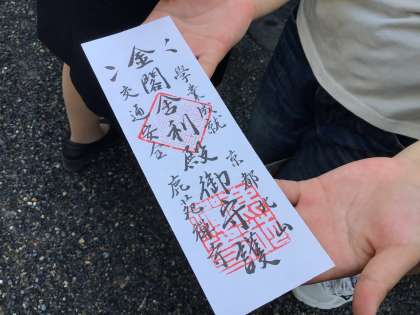 學業成就
京都北山
金閣舎利殿御守護
交通安全
鹿苑禅寺